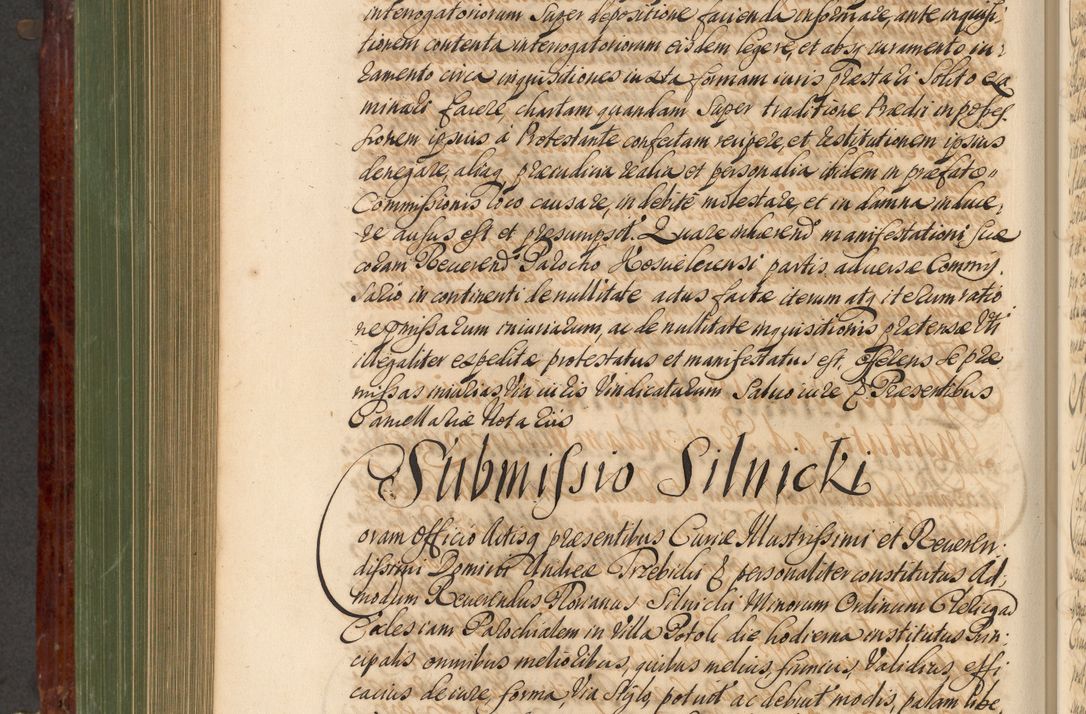 interrogatoriorum super depositione facienda informare, ante inquisi,
tionem contenta interrogatoriorum eisdem legere, et absq iuramento iu,
ramento circa inquisitiones iuxta formam iuris præstari solito exa
minari facere, chartam quandam super traditione Prædii in posses
sionem ipsius à Protestante confectam recipere, et restitutionem ipsius
denegare, aliaq præiudicia realia et personalia ibidem in præfatæ
Commissionis loco causare, indebitè molestare, et in damna induce,
re ausus est et præsumpsit. Quare inhærend manifestationi suæ
coram Reuerend Parocho Kosuelecensi partis aduersæ Commis,
sario in continenti de nullitate actus factæ iterum atq iterum ratio
ne præmissarum iniuriarum, ac de nullitate inquisitionis prætensæ uti
illegaliter expeditæ protestatus et manifestatus est, offerens se præ
missas iniurias, via iuris vindicaturum Saluo iure &c Præsentibus
Cancellariæ Notariis
Submissio Silnicki
Coram Officio Actisq præsentibus Curiæ Illustrissimi et Reueren,
dissimi Domini Andreæ Trzebicki &c personaliter constitutus Ad,
modum Reuerendus Florianus Silnicki Minorum Ordinum Clericq ad
Ecclesiam Parochialem in Villa Potok die hodierna institutus Prin,
cipalis omnibus melioribus, quibus melius, firmius, validius, effi
cacius de iure, forma, via stylo, potuit ac debuit modis, palam libe,